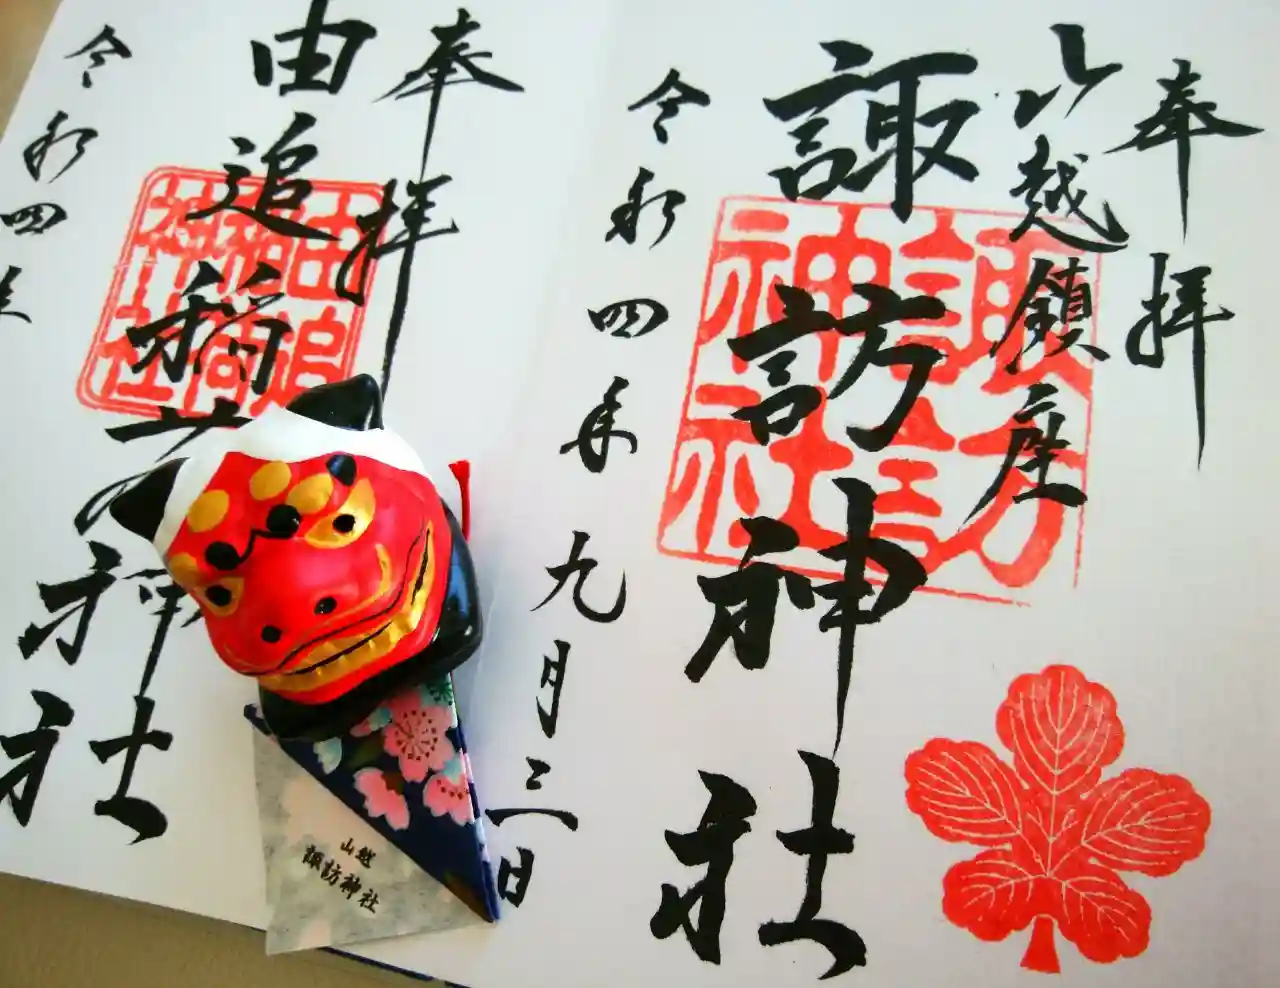 奉拝
山越鎮座
諏訪神社
諏訪
神社
令和四年九月三日
奉拝
由追稲荷神社
由追
稲荷
神社
令和四年
山越
諏訪神社